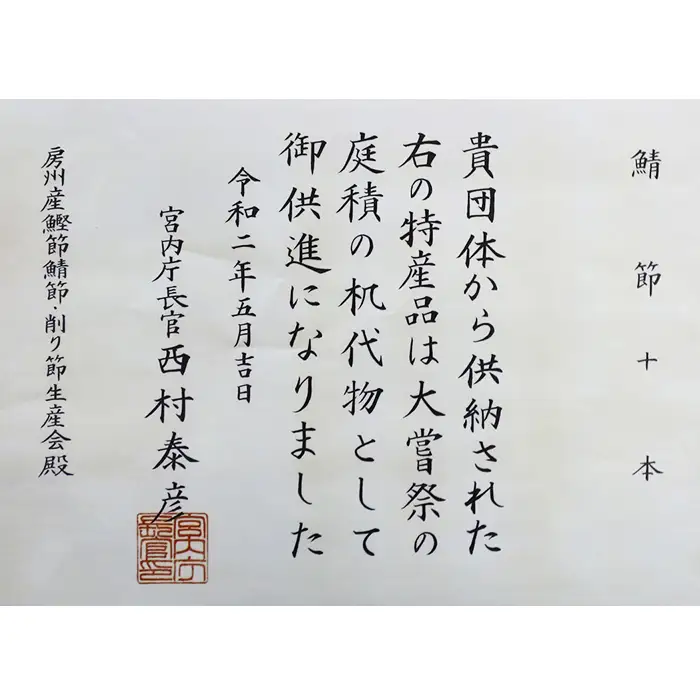 鯖節十本
貴団体から供納された
右の特産品は大嘗祭の
庭積の机代物として
御供進になりました
令和二年五月吉日
宮内庁長官西村泰彦
宮内庁長官印
房州産鰹節鯖節・削り節生産会殿